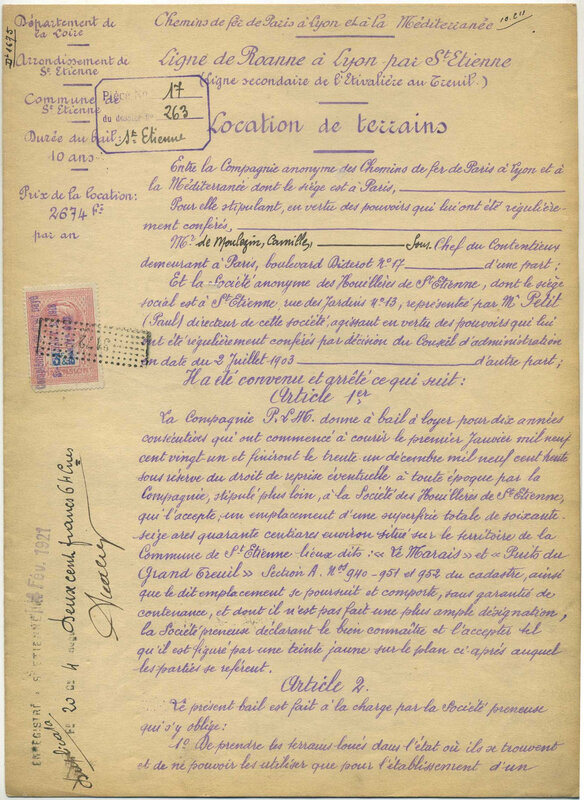 Département de
la Loire
Arrondissement de
St Etienne
Commune de
St Etienne
Durée du bail:
10 ans
Prix de la location:
2674 frs
par an
Chemins de fer de Paris à Lyon et à la Méditerranée
Ligne de Roanne à Lyon par St Etienne
(Ligne secondaire de l'Etivalière au Treuil.)
Pièce No 17
du dossier No 263
St Etienne
Location de terrains
Entre la Compagnie anonyme des Chemins de fer de Paris à Lyon et à
la Méditerranée dont le siège est à Paris,
Pour elle stipulant, en vertu des pouvoirs qui lui ont été régulière-
ment conférés,
Mr de Moulezin, Camille, Sous Chef du Contentieux
demeurant à Paris, boulevard Diderot No 17 d'une part;
Et la Société anonyme des Houillères de St Etienne, dont le siège
social est à St Etienne rue des Jardins No 13, représentée par Mr Petit
(Paul) directeur de cette société, agissant en vertu des pouvoirs qui lui
ont été régulièrement conférés par décision du Conseil d'administration
en date du 2 Juillet 1903 d'autre part;
Il a été convenu et arrêté ce qui suit:
Article 1er
La Compagnie P.L.M. donne à bail à loyer pour dix années
consécutives qui ont commencé à courir le premier Janvier mil neuf
cent vingt un et finiront le trente un décembre mil neuf cent trente
sous réserve du droit de reprise éventuelle à toute époque par la
Compagnie, stipulé plus loin, à la Société des Houillères de St Etienne,
qui l'accepte, un emplacement d'une superficie totale de soixante-
seize ares quarante centiares environ situé sur le territoire de la
Commune de St Etienne lieux dits: « Le Marais » et « Puits du
Grand Treuil » Section A. Nos 940-951 et 952 du cadastre, ainsi
que le dit emplacement se poursuit et comporte, sans garantie de
contenance, et dont il n'est pas fait une plus ample désignation,
la Société preneuse déclarant le bien connaître et l'accepter tel
qu'il est figuré par une teinte jaune sur le plan ci-après auquel
les parties se réfèrent.
Article 2.
Le présent bail est fait à la charge par la Société preneuse
qui s'y oblige:
1o De prendre les terrains loués dans l'état où ils se trouvent
et de ne pouvoir les utiliser que pour l'établissement d'un
ENREGISTRÉ à ST ETIENNE
FEV. 1921
Fo 20 Ce 4
Deux cent francs